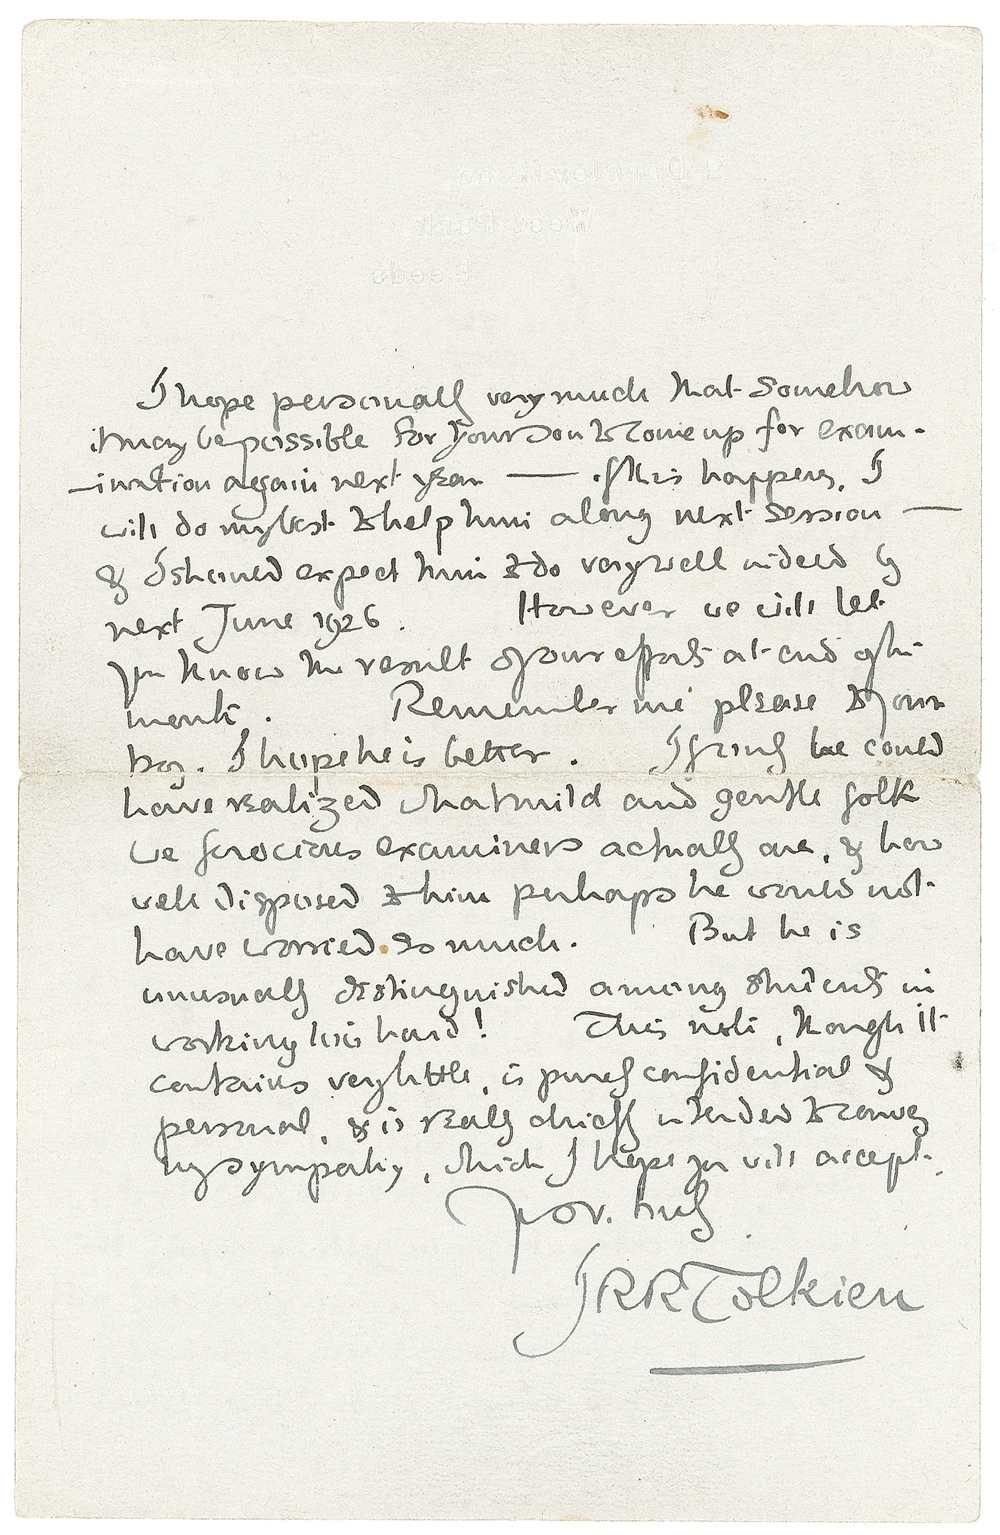 2 Darnley Road
West Park
Leeds
I hope personally very much that somehow
it may be possible for your son to come up for exam-
-ination again next year — if this happens, I
will do my best to help him along next session —
& I should expect him to do very well indeed by
next June 1926. However we will let
you know the result of our efforts at end of this
month. Remember me please to your
boy. I hope he is better. If only he could
have realized what mild and gentle folk
we ferocious examiners actually are, & how
well disposed to him perhaps he would not
have worried so much. But he is
unusually distinguished among students in
working too hard! This note, though it
contains very little, is purely confidential &
personal, & is really chiefly intended to convey
my sympathy, which I hope you will accept.
Yrs v. truly
JRRTolkien